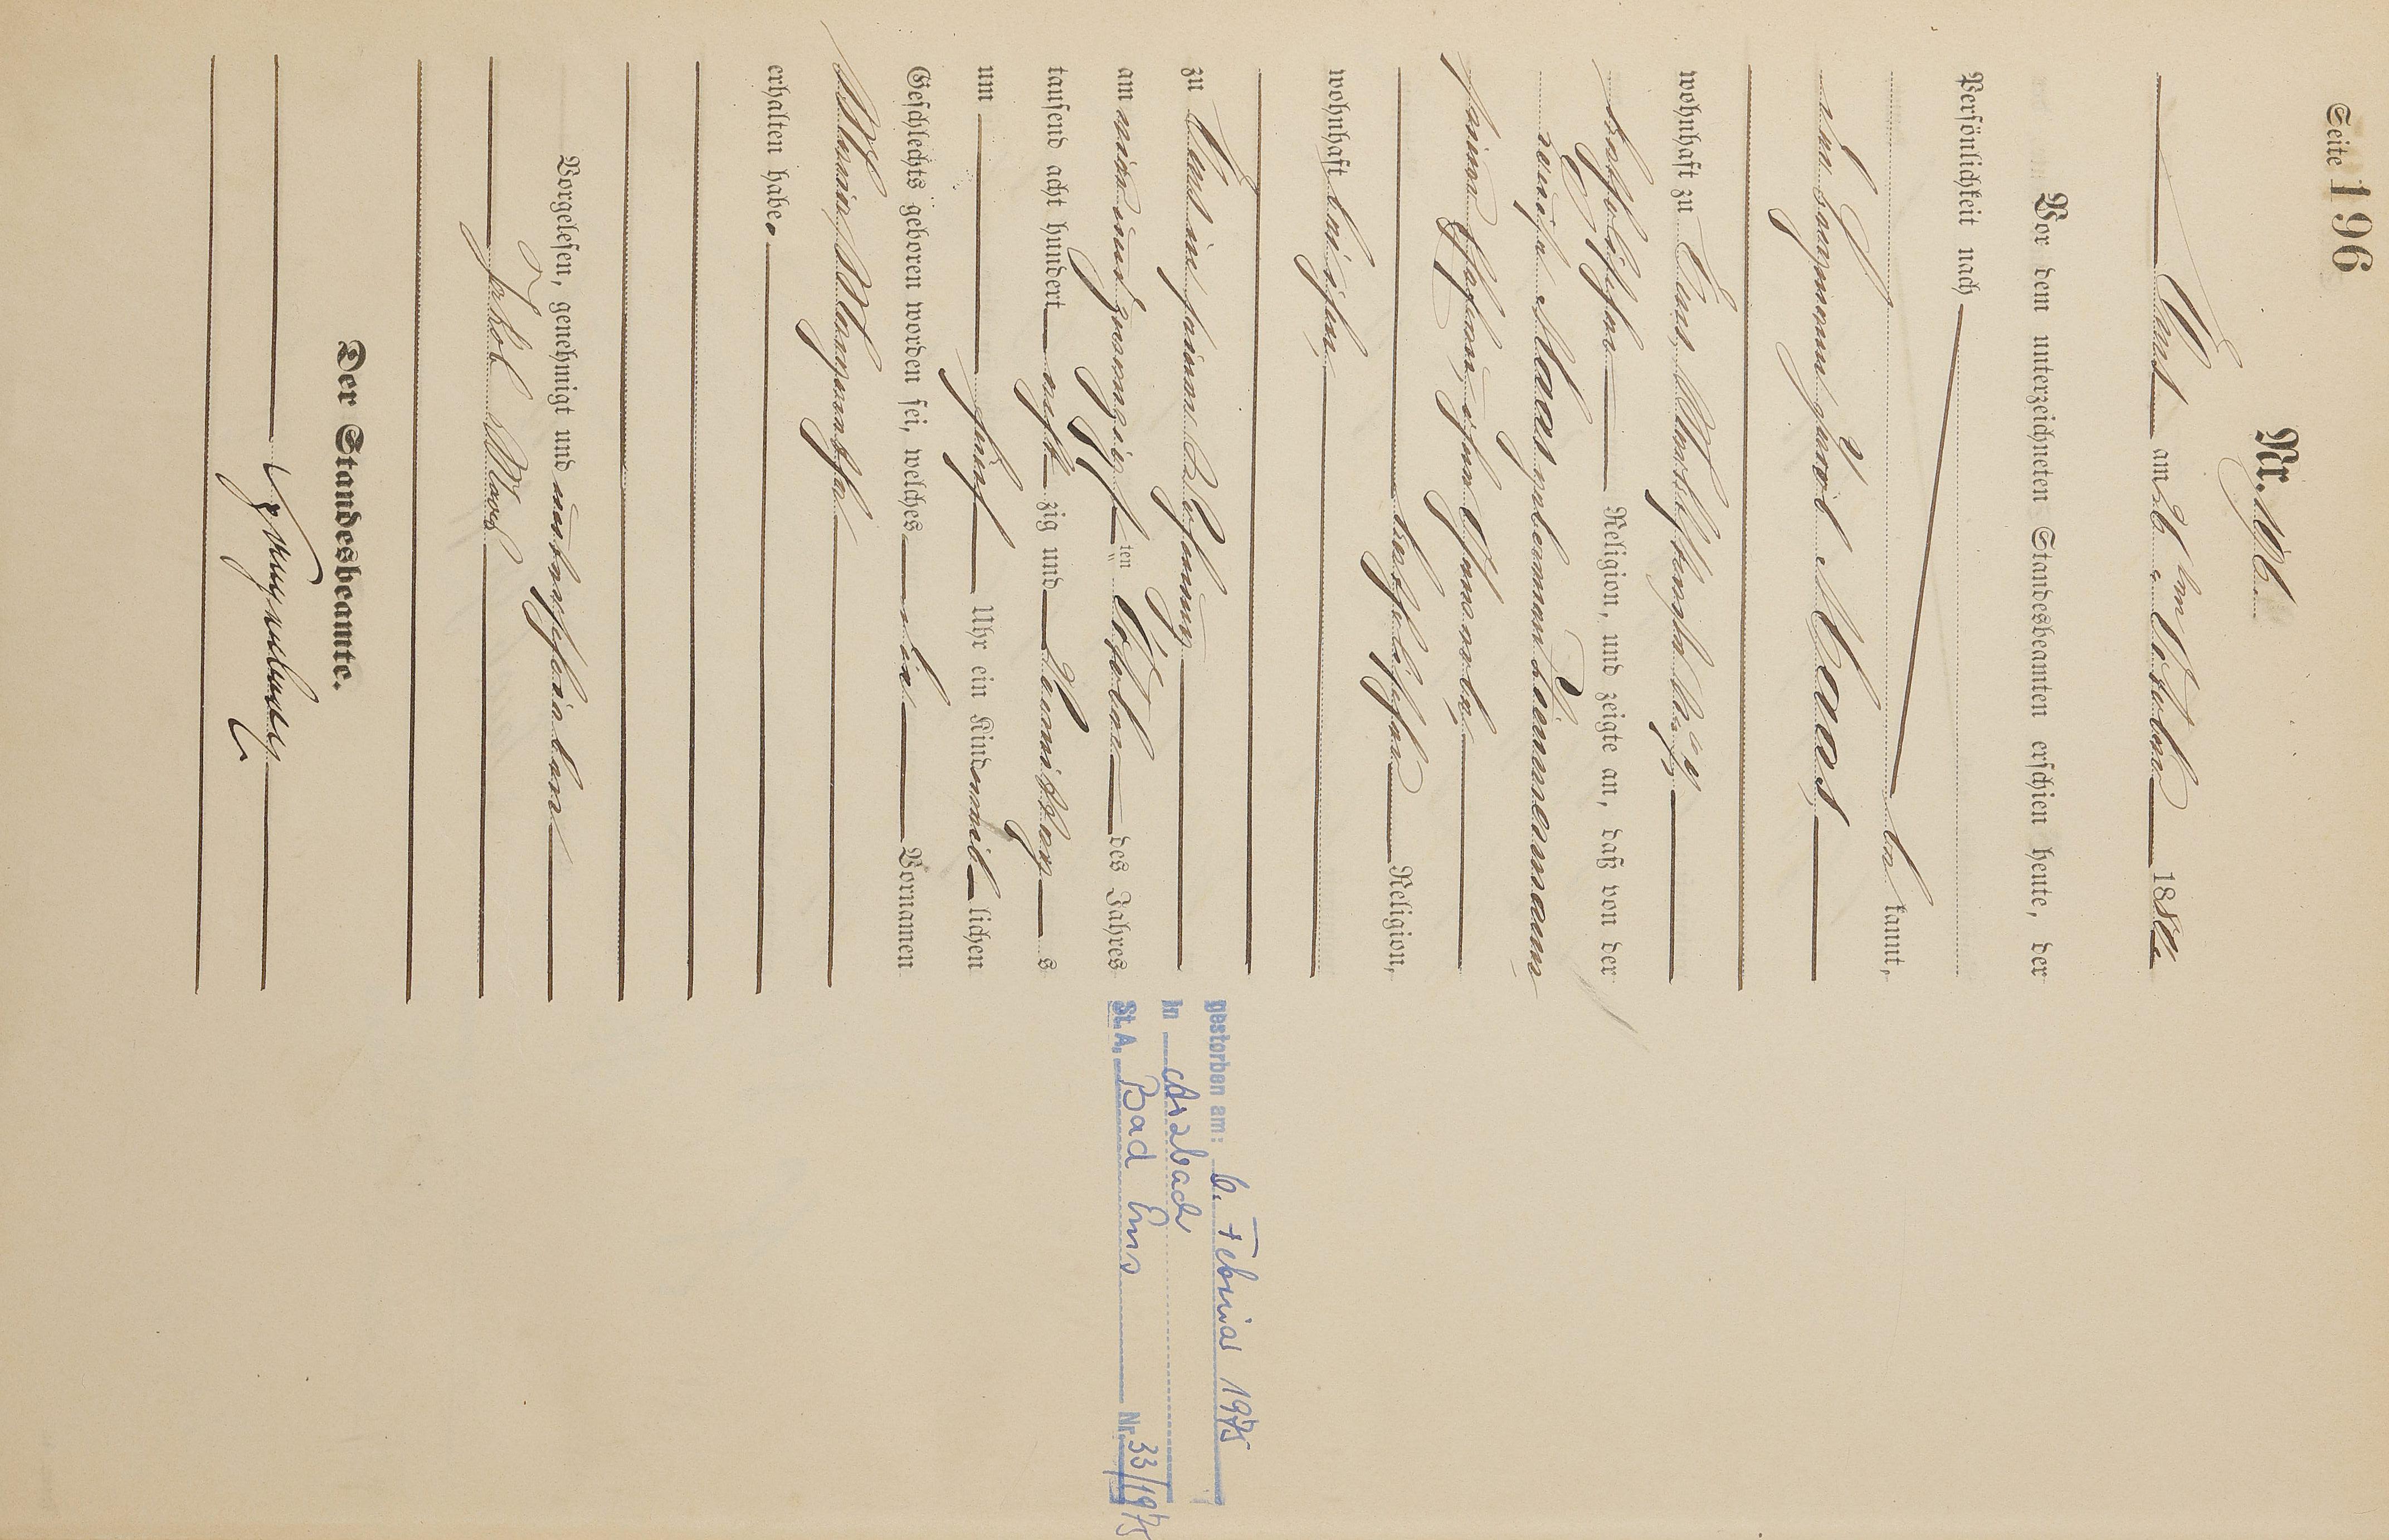 Seite 196
Nr. 196.
Ems am 26 ten Oktober 1880.
Vor dem unterzeichneten Standesbeamten erschien heute, der
Persönlichkeit nach
be kannt,
der Jakob Maas,
wohnhaft zu Ems,
katholischer Religion, und zeigte an, daß von der
Maas geborenen Zimmermann
seiner Ehefrau,
katholischer Religion,
wohnhaft bei ihm,
zu Ems in seiner Wohnung
am ein und zwanzigsten Oktober des Jahres
tausend acht hundert acht zig und Vormittags
um fünf Uhr ein Kind weib lichen
Geschlechts geboren worden sei, welches die Vornamen
Maria Margaretha
erhalten habe.
Vorgelesen, genehmigt und unterschrieben
Jakob Maas
Der Standesbeamte.
gestorben am: 6. Februar 1975
in Arzbach
St.A. Bad Ems Nr. 33/1975